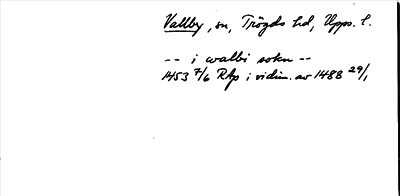 Vallby, sn, Trögds hd, Upps. l.
-- i walbi sokn --
1453 7/6 RAp i vidim. av 1488 29/1